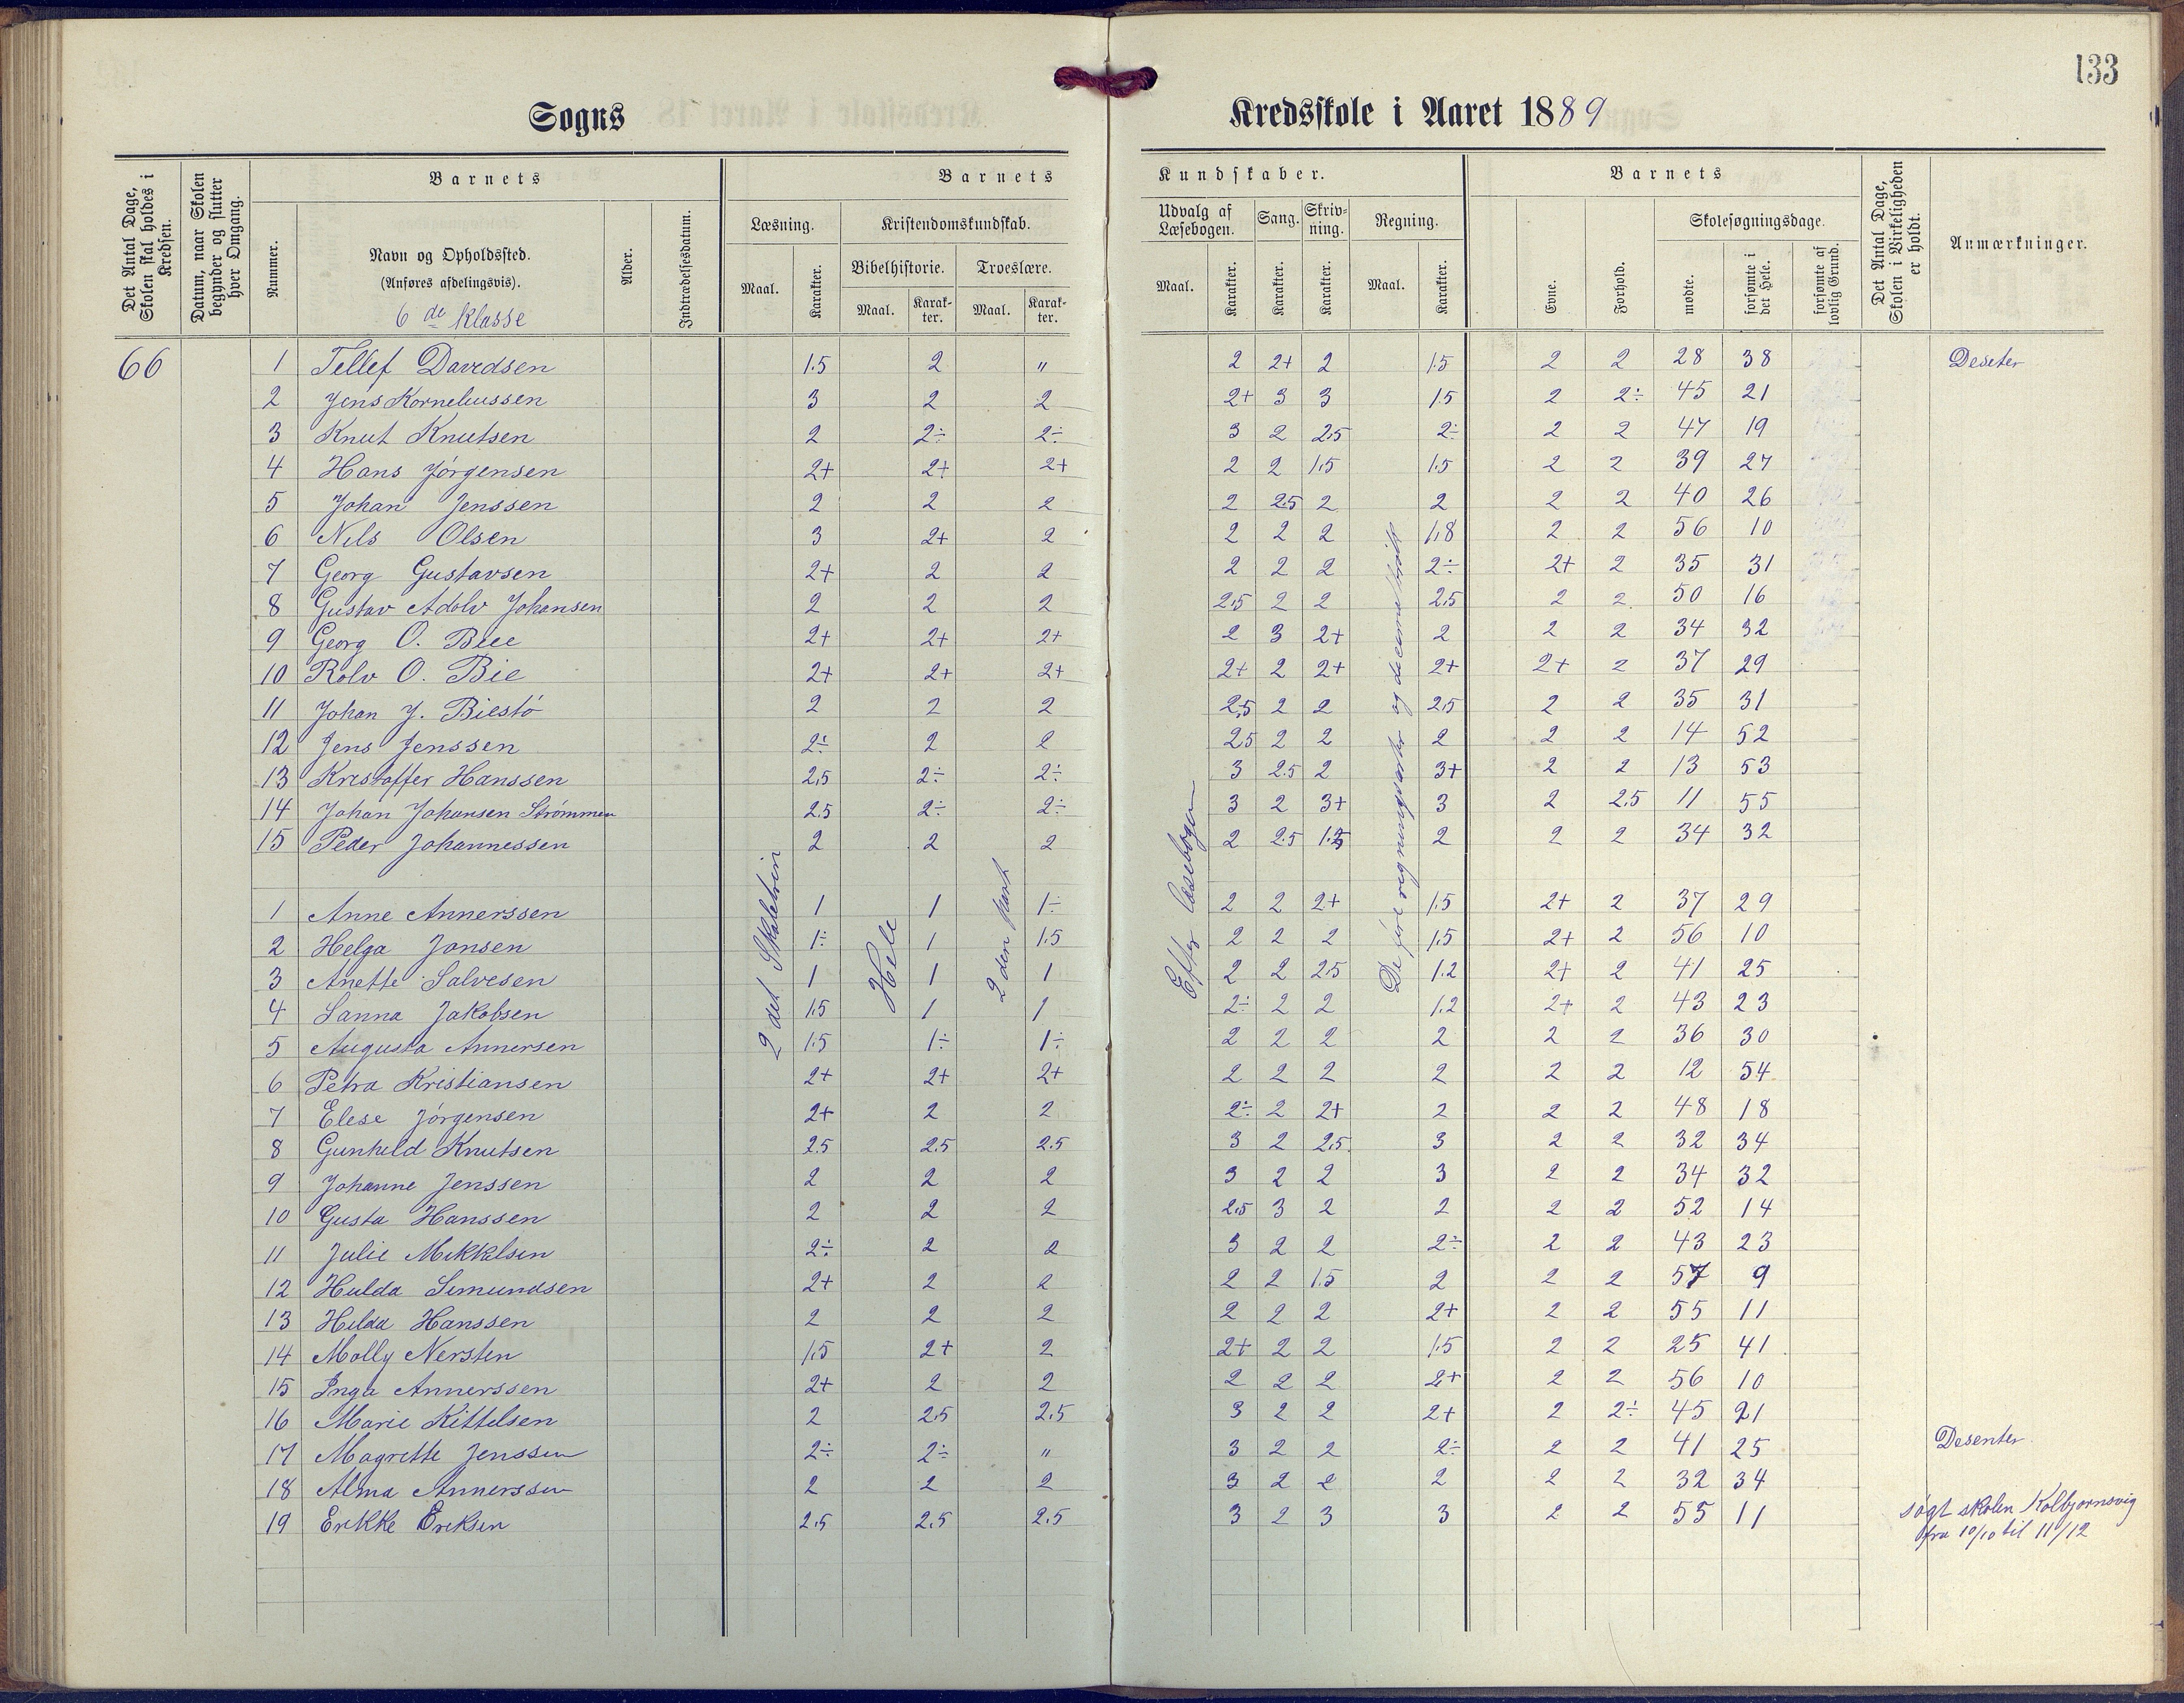 133
Sogns Kredsskole i Aaret 1889
Det Antal Dage, Skolen skal holdes i Kredsen.
Datum, naar Skolen begynder og slutter hver Omgang.
Barnets
Nummer.
Navn og Opholdssted.
(Anføres afdelingsvis).
6 de klasse
Alder.
Indtrædelsesdatum.
Barnets Kundskaber.
Læsning. Kristendomskundskab. Udvalg af Læsebogen. Sang. Skrivning. Regning.
Bibelhistorie. Troeslære.
Maal. Karakter. Maal. Karakter. Maal. Karakter. Maal. Karakter. Karakter. Karakter. Maal. Karakter.
Barnets
Evne. Forhold. Skolesøgningsdage.
mødte. forsømte i det Hele. forsømte af lovlig Grund.
Det Antal Dage, Skolen i Virkeligheden er holdt.
Anmærkninger.
66 1 Tellef Davedsen 1.5 2 " 2 2+ 2 1.5 2 2 28 38 Deseter
2 Jens Korneliussen 3 2 2 2+ 3 3 1.5 2 2÷ 45 21
3 Knut Knutsen 2 2÷ 2÷ 3 2 2.5 2÷ 2 2 47 19
4 Hans Jørgensen 2+ 2+ 2+ 2 2 1.5 1.5 2 2 39 27
5 Johan Jenssen 2 2 2 2 2.5 2 2 2 2 40 26
6 Nils Olsen 3 2+ 2 2 2 2 1.8 2 2 56 10
7 Georg Gustavsen 2+ 2 2 2 2 2 2÷ 2+ 2 35 31
8 Gustav Adolv Johansen 2 2 2 2.5 2 2 2.5 2 2 50 16
9 Georg O. Biee 2+ 2+ 2+ 2 3 2+ 2 2 2 34 32
10 Rolv O. Bie 2+ 2+ 2+ 2+ 2 2+ 2+ 2+ 2 37 29
11 Johan J. Biestö 2 2 2 2.5 2 2 2.5 2 2 35 31
12 Jens Jenssen 2÷ 2 2 2.5 2 2 2 2 2 14 52
13 Kristoffer Hanssen 2.5 2÷ 2÷ 3 2.5 2 3+ 2 2 13 53
14 Johan Johansen Strömmen 2.5 2÷ 2÷ 3 2 3+ 3 2 2.5 11 55
15 Peder Johannessen 2 2 2 2 2.5 1.5 2 2 2 34 32
2 det Skoletrin
Hele
2 den part
Efter læsebogen
De fire regningsarter og decimalbrøk
1 Anne Annerssen 1 1 1÷ 2 2 2+ 1.5 2+ 2 37 29
2 Helga Jonsen 1÷ 1 1.5 2 2 2 1.5 2+ 2 56 10
3 Anette Salvesen 1 1 1 2 2 2.5 1.2 2+ 2 41 25
4 Sanna Jakobsen 1.5 1 1 2÷ 2 2 1.2 2+ 2 43 23
5 Augusta Annersen 1.5 1÷ 1÷ 2 2 2 2 2 2 36 30
6 Petra Kristiansen 2+ 2+ 2+ 2 2 2 2 2 2 12 54
7 Elese Jørgensen 2+ 2 2 2÷ 2 2+ 2 2 2 48 18
8 Gunhild Knutsen 2.5 2.5 2.5 3 2 2.5 3 2 2 32 34
9 Johanne Jenssen 2 2 2 3 2 2 3 2 2 34 32
10 Gusta Hanssen 2 2 2 2.5 3 2 2 2 2 52 14
11 Julie Mikkelsen 2÷ 2 2 3 2 2 2÷ 2 2 43 23
12 Hulda Simundsen 2+ 2 2 2 2 1.5 2 2 2 57 9
13 Hilda Hanssen 2 2 2 2 2 2 2+ 2 2 55 11
14 Molly Nersten 1.5 2+ 2 2+ 2 2 1.5 2 2 25 41
15 Inga Annerssen 2+ 2 2 2 2 2 2+ 2 2 56 10
16 Marie Kittelsen 2 2.5 2.5 3 2 2 2+ 2 2÷ 45 21
17 Magrette Jenssen 2÷ 2÷ " 3 2 2 2÷ 2 2 41 25 Desenter
18 Alma Annerssen 2 2 2 3 2 2 2 2 2 32 34
19 Erikke Eriksen 2.5 2.5 2.5 3 2 3 3 2 2 55 11 søgt skolen Kolbjornsvig
fra 10/10 til 11/12